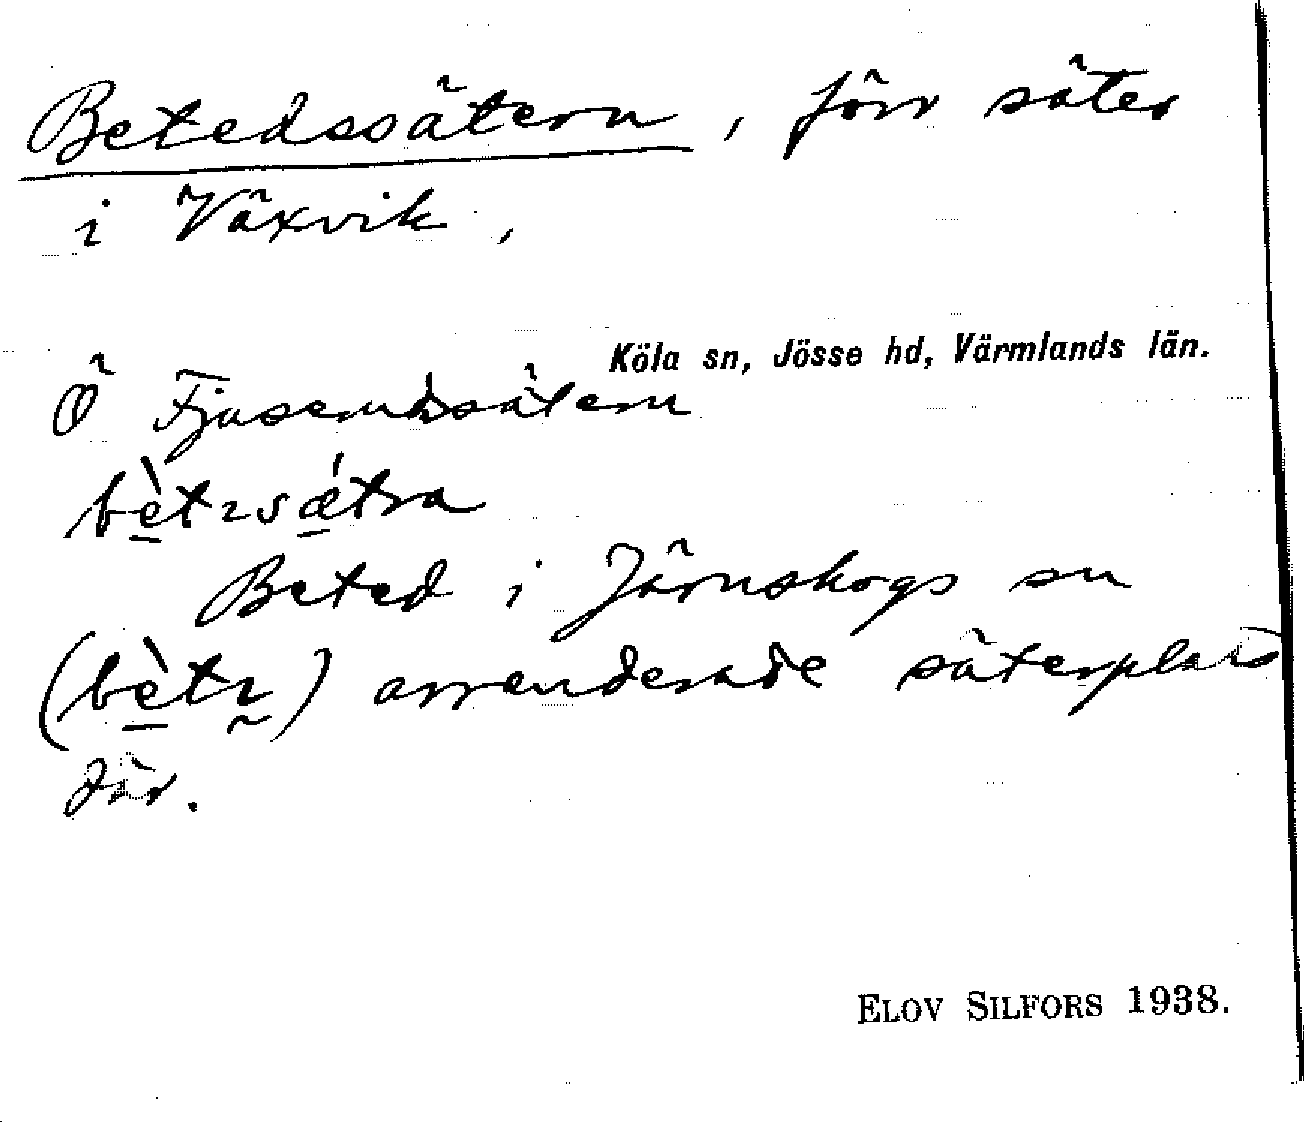 Betedssätern, förr säter
i Växvik,
Köla sn, Jösse hd, Värmlands län.
Ö Fjusemdsätern
bètɿsǽtra
Beted i Järnskogs sn
(bètɿ̰) arrenderade säterplats
där.
ELOV SILFORS 1938.